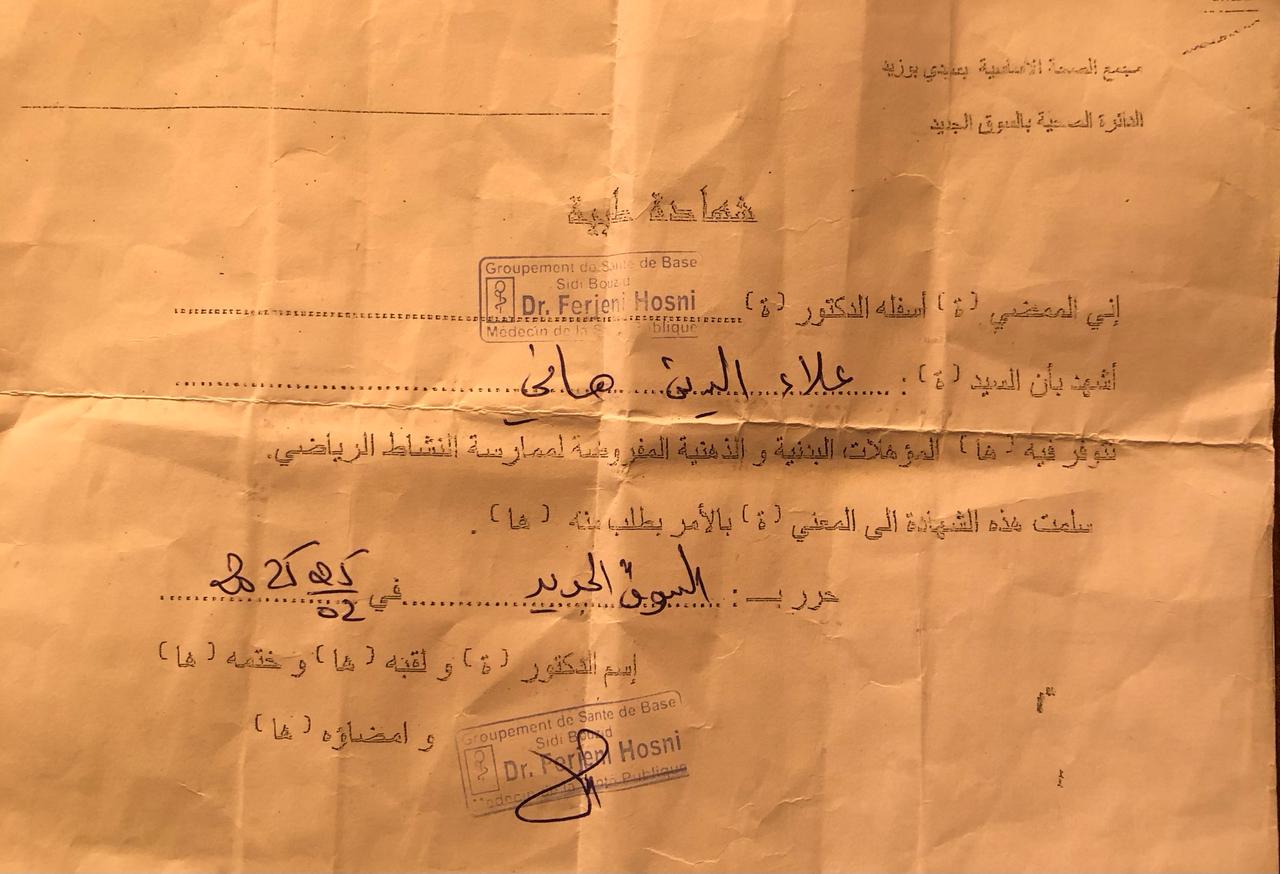 مجمع الصحة الأساسية بسيدي بوزيد
الدائرة الصحية بالسوق الجديد
شهادة طبية
Groupement de Santé de Base
Sidi Bouzid
Dr. Ferjeni Hosni
Médecin de la Santé Publique
إني الممضي (ة) أسفله الدكتور (ة)
أشهد بأن السيد (ة) : علاء الدين هاني
تتوفر فيه (ها) المؤهلات البدنية و الذهنية المفروضة لممارسة النشاط الرياضي.
سلمت هذه الشهادة الى المعني (ة) بالأمر بطلب منه (ها) .
حرر بـ : السوق الجديد في
إسم الدكتور (ة) و لقبه (ها) و ختمه (ها)
و امضاؤه (ها)
Groupement de Santé de Base
Sidi Bouzid
Dr. Ferjeni Hosni
Médecin de la Santé Publique